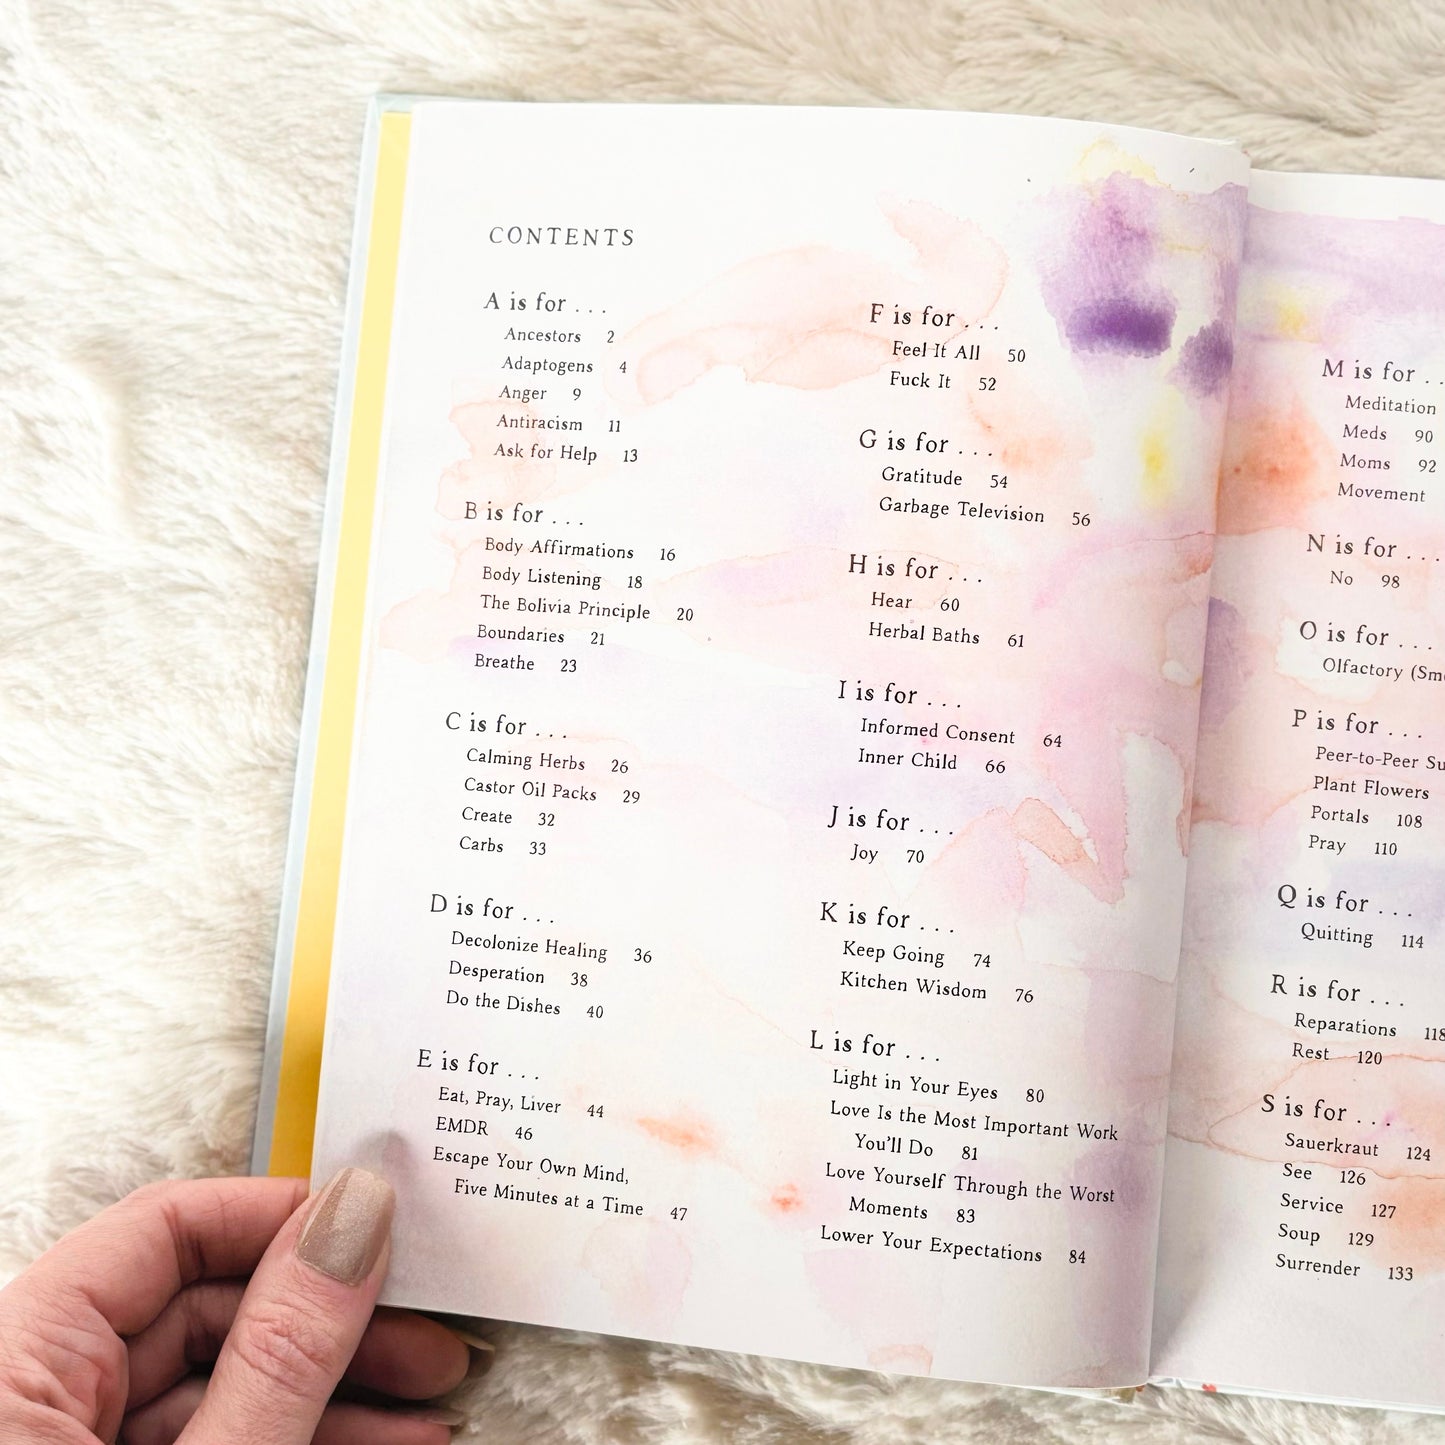 CONTENTS
A is for . . .
Ancestors 2
Adaptogens 4
Anger 9
Antiracism 11
Ask for Help 13
B is for . . .
Body Affirmations 16
Body Listening 18
The Bolivia Principle 20
Boundaries 21
Breathe 23
C is for . . .
Calming Herbs 26
Castor Oil Packs 29
Create 32
Carbs 33
D is for . . .
Decolonize Healing 36
Desperation 38
Do the Dishes 40
E is for . . .
Eat, Pray, Liver 44
EMDR 46
Escape Your Own Mind,
Five Minutes at a Time 47
F is for . . .
Feel It All 50
Fuck It 52
G is for . . .
Gratitude 54
Garbage Television 56
H is for . . .
Hear 60
Herbal Baths 61
I is for . . .
Informed Consent 64
Inner Child 66
J is for . . .
Joy 70
K is for . . .
Keep Going 74
Kitchen Wisdom 76
L is for . . .
Light in Your Eyes 80
Love Is the Most Important Work
You'll Do 81
Love Yourself Through the Worst
Moments 83
Lower Your Expectations 84
M is for . .
Meditation
Meds 90
Moms 92
Movement
N is for . . .
No 98
O is for . . .
Olfactory
P is for . . .
Peer-to-Peer
Plant Flowers
Portals 108
Pray 110
Q is for . . .
Quitting 114
R is for . . .
Reparations 118
Rest 120
S is for . . .
Sauerkraut 124
See 126
Service 127
Soup 129
Surrender 133